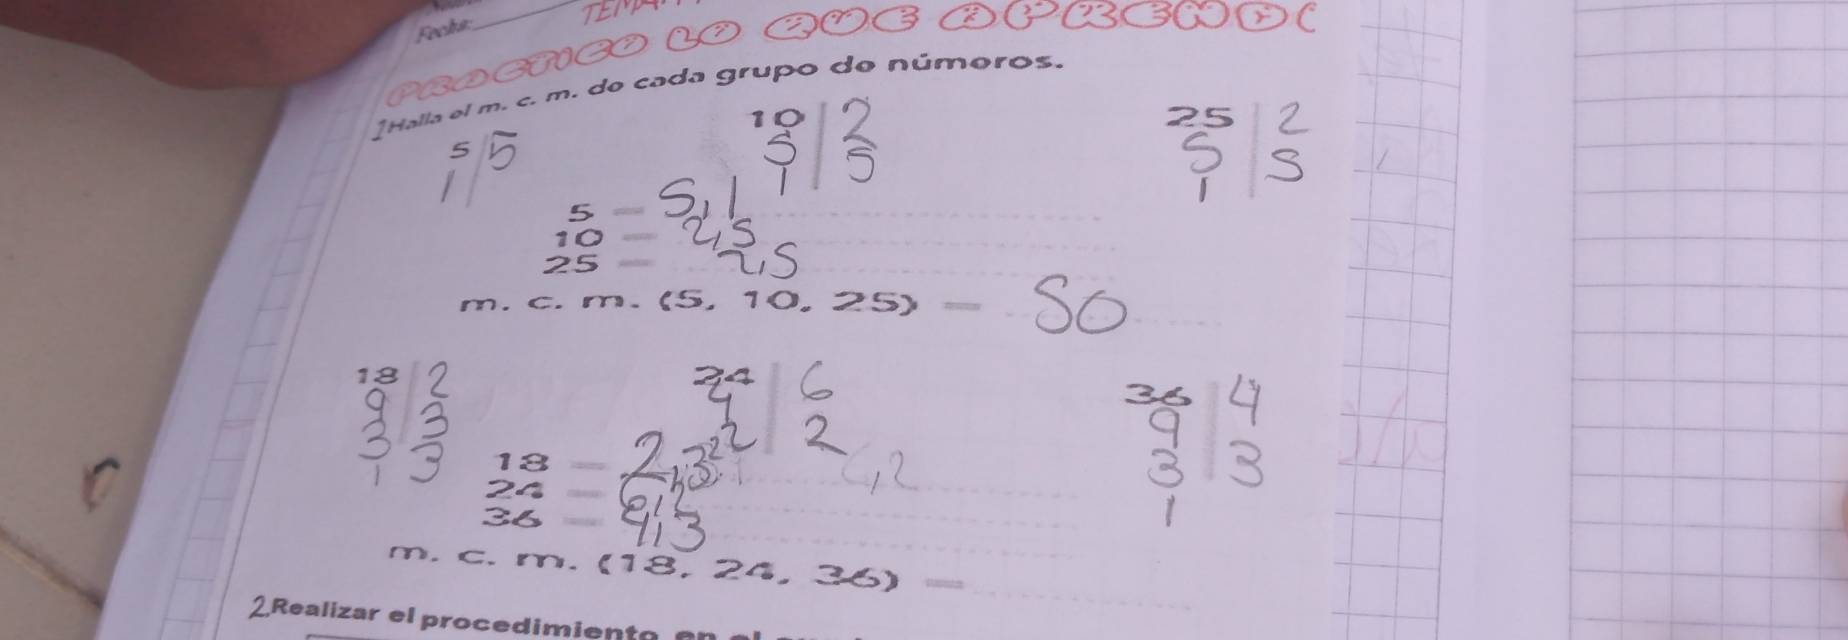 Fecha:
TEMA
PRACTICO LO QUE APRENDO
1 Halla el m. c. m. de cada grupo de números.
5 | 5
1
10 | 2
5 | 5
1
25 | 2
5 | 5
1
5 = 5,1
10 = 2,5
25 = 2,5
m. c. m. (5, 10, 25) = 50
18 | 2
9 | 3
3 | 3
1
24 | 6
4 | 2
2
36 | 4
9 | 3
3
1
18 = 2,3²
24 =
36 = 4,3
m. c. m. (18, 24, 36) =
2 Realizar el procedimiento en el